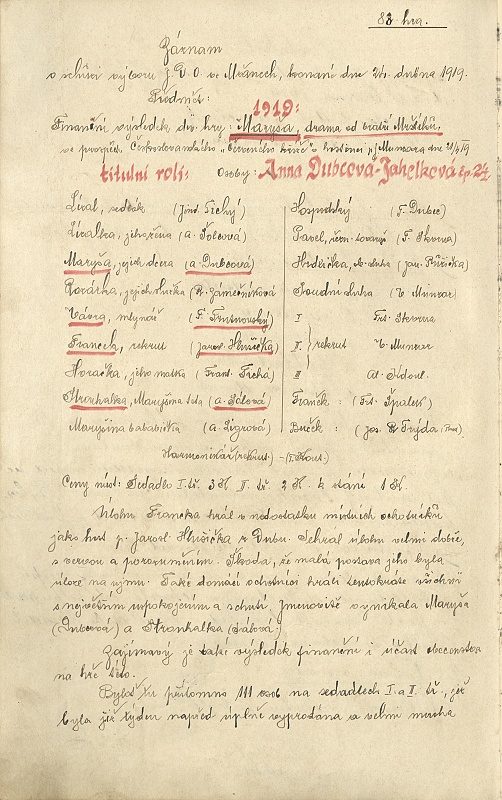 88. hra.
Záznam
o schůzi výboru J. D. O. ve Mžanech, konané dne 24. dubna 1919.
Předmět:
1919:
Finanční výsledek div. hry: Maryša, drama od bratří Mrštíků,
ve prospěch Československého "Červeného kříže" v hostinci p. J. Munzara dne 21/4 19
titulní roli: Osoby: Anna Dubcová-Jahelková čp. 24.
Lízal, sedlák (Jind. Tichý)
Lízalka, jeho žena (A. Šolcová)
Maryša, jejich dcera (A. Dubcová)
Rozárka, jejich služka (R. Zámečníková
Vávra, mlynář (F. Trutnovský)
Francek, rekrut (Jarosl. Hlušička)
Horačka, jeho matka (Frant. Tichá)
Strouhalka, Maryšina teta (A. Sálová)
Maryšina babička (A. Ligrová)
Hospodský (F. Dubec)
Pavel, (F. Skovna)
Hrdlička, ob. sluha (Jan. Růžička)
Soudní sluha (V. Munzar)
I Frt. Skovna
II. rekrut V. Munzar
III
Franěk: (Frt. Špalek)
Buček: (Jos. Frýda
Harmonikář (rekrut) - (F. Kout.)
Ceny míst: Sedadlo I. tř. 3 K II. tř. 2 K. k stání 1 K.
Úlohu Francka hrál v nedostatku místních ochotníků
jako host p. Jarosl. Hlušička z Dubu. Sehrál úlohu velmi dobře,
s vervou a porozuměním. Škoda, že malá postava jeho byla
úloze na újmu. Také domácí ochotníci hráli tentokráte všichni
s největším uspokojením a schutí. Jmenovitě vynikala Maryša
(Dubcová) a Strouhalka (Sálová).
Zajímavý je také výsledek finanční i účast obecenstva
na hře této.
Byloť tu přítomno 111 osob na sedadlech I. a II. tř., jež
byla již týden napřed úplně vyprodána a velmi mnoho